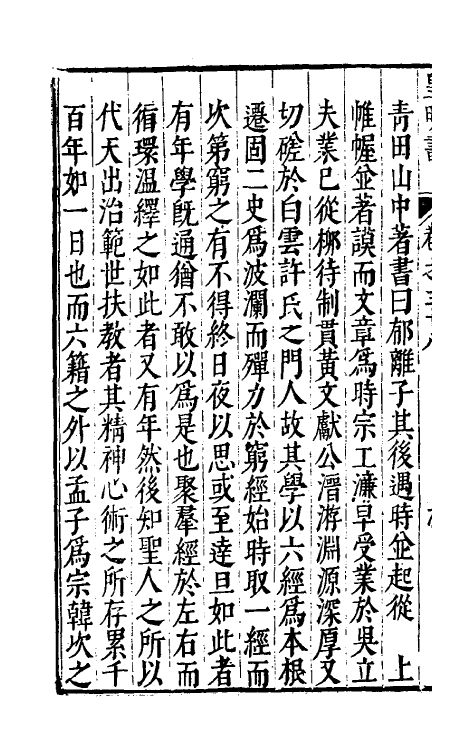 青田山中著書曰郁離子其後遇時並起從　上
帷幄並著謨而文章爲時宗工濂早受業於吳立
夫業已從柳待制貫黃文獻公溍游淵源深厚又
切磋於白雲許氏之門人故其學以六經爲本根
遷固二史爲波瀾而殫力於窮經始時取一經而
次第窮之有不得終日夜以思或至達旦如此者
有年學旣通猶不敢以爲是也聚羣經於左右而
循環溫繹之如此者又有年然後知聖人之所以
代天出治範世扶教者其精神心術之所存累千
百年如一日也而六籍之外以孟子爲宗韓次之